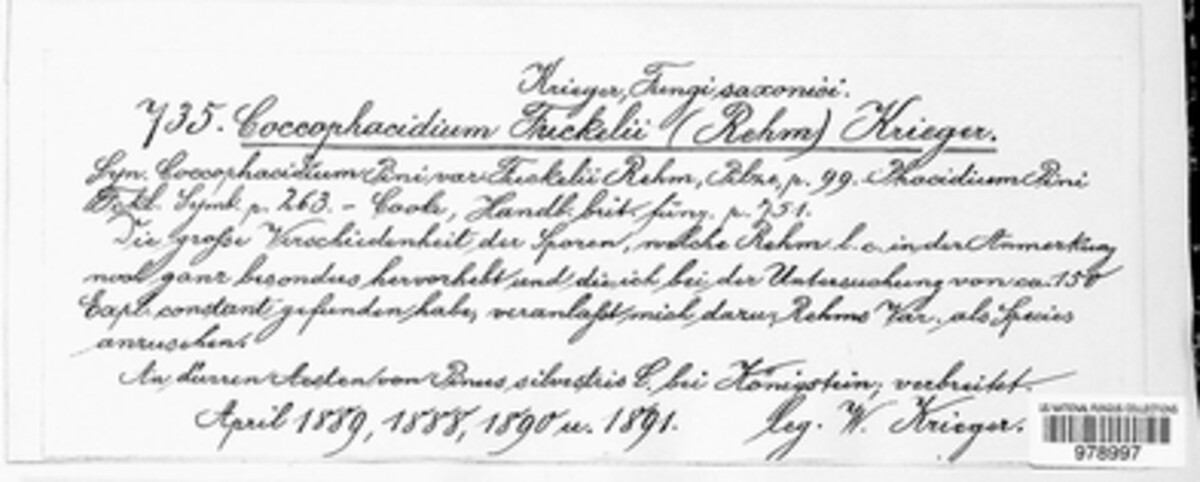 Krieger, Fungi saxonici.
735. Coccophacidium Fuckelii (Rehm) Krieger.
Syn. Coccophacidium Pini, var. Fuckelii Rehm, Pilze, p. 99. Phacidium Pini
Fckl. Symb. p. 263. – Cooke, Handb. brit. fung. p. 751.
Die große Verschiedenheit der Sporen, welche Rehm l. c. in der Anmerkung
noch ganz besonders hervorhebt und die ich bei der Untersuchung von ca. 150
Expl. constant gefunden habe, veranlaßt mich dazu, Rehms Var. als Species
anzusehen.
An dürren Aesten von Pinus silvestris L. bei Königstein; verbreitet.
April 1889, 1888, 1890 u. 1891. leg. W. Krieger.
US NATIONAL FUNGUS COLLECTIONS
978997